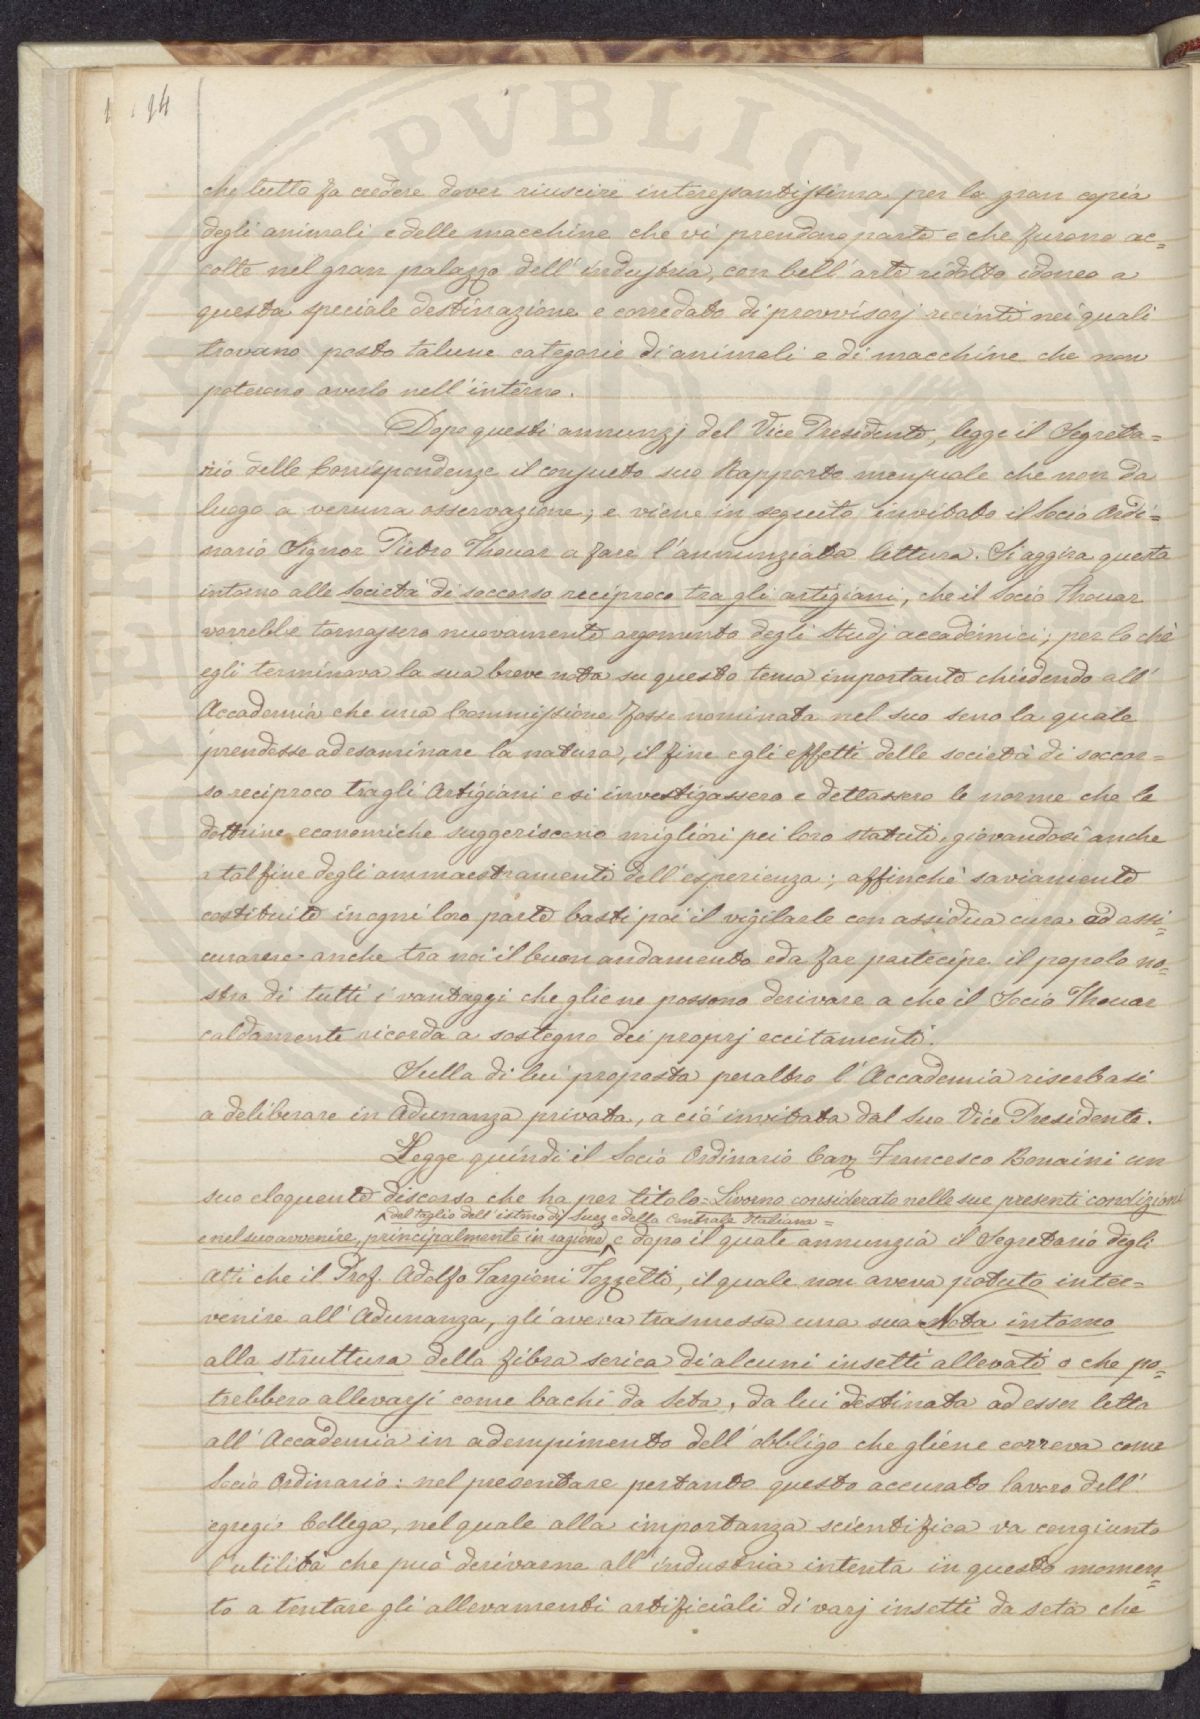 194
PVBLICAE
PERITATI
che tutto fa credere dover riuscire interessantissima per la gran copia
degli animali, e delle macchine che vi prendono parte e che furono ac=
colte nel gran palazzo dell'industria, con bell'arte ridotto idoneo a
questa speciale destinazione e corredato di provvisorj recinti nei quali
trovano posto talune categorie di animali e di macchine che non
poterono averlo nell'interno.
Dopo questi annunzj del Vice Presidente, legge il Segreta=
rio delle Corrispondenze il consueto suo Rapporto mensuale che non da
luogo a veruna osservazione; e viene in seguito invitato il Socio Ordi=
nario Signor Pietro Thouar a fare l'annunziata lettura. Si aggira questa
intorno alle Società di soccorso reciproco tra gli artigiani, che il Socio Thouar
vorrebbe tornassero nuovamente argomento degli Studj accademici; per lo chè
egli terminava la sua breve nota su questo tema importante chiedendo all'
Accademia che una Commissione fosse nominata nel suo seno la quale
prendesse ad esaminare la natura, il fine e gli effetti delle società di soccor=
so reciproco tra gli Artigiani e si investigassero e dettassero le norme che le
dottrine economiche suggeriscono migliori pei loro statuti, giovandosi anche
a tal fine degli ammaestramenti dell'esperienza; affinchè saviamente
costituite in ogni loro parte basti poi il vigilarle con assidua cura ad assi=
curarne anche tra noi il buon andamento e da far partecipe il popolo no=
stro di tutti i vantaggi che gliene possono derivare a che il Socio Thouar
caldamente ricorda a sostegno dei proprj eccitamenti.
Sulla di lui proposta peraltro l'Accademia riserbasi
a deliberare in Adunanza privata, a ciò invitata dal suo Vice Presidente.
Legge quindi il Socio Ordinario Cav. Francesco Bonaini un
suo eloquente discorso che ha per titolo= Livorno considerato nelle sue presenti condizioni
del taglio dell'istmo di Suez e della Centrale Italiana=
e nel suo avvenire, principalmente in ragione, e dopo il quale annunzia il Segretario degli
Atti che il Prof. Adolfo Targioni Tozzetti, il quale non aveva potuto inter=
venire all'Adunanza, gli aveva trasmessa una sua Nota intorno
alla struttura della fibra serica di alcuni insetti allevati o che po=
trebbero allevarsi come bachi da Seta, da lui destinata ad esser letta
all'Accademia in adempimento dell'obbligo che gliene correva come
Socio Ordinario: nel presentare pertanto questo accurato lavoro dell'
egregio Collega, nel quale alla importanza scientifica va congiunta
l'utilità che può derivarne all'industria intenta in questo momen=
to a tentare gli allevamenti artificiali di varj insetti da seta che